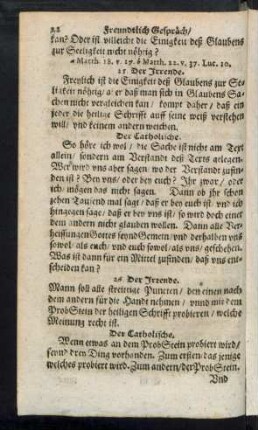 22 Freundtlich Gespräch/
kan? Oder ist villeicht die Einigkeit deß Glaubens
zur Seeligkeit nicht nöhtig?
a Matth. 18. v. 17. b Matth. 22. v. 37. Luc. 10.
25 Der Irrende.
Freylich ist die Einigkeit deß Glaubens zur See-
ligkeit nöhtig/ aber daß man sich in Glaubens Sa-
chen nicht vergleichen kan/ kompt daher/ daß ein
jeder die heilige Schrifft auff seine weiß verstehen
will/ vnd keinem andern weichen.
Der Catholische.
So höre ich wol/ die Sache ist nicht am Text
allein/ sondern am Verstandt deß Texts gelegen.
Wer wird vns aber sagen/ wo der Verstandt zufin-
den ist? Bey vns/ oder bey euch? Ihr zwar/ oder
ich/ mögen das nicht sagen. Dann ob ihr schon
zehen Tausend mal sagt/ daß er bey euch ist vnd ich
hingegen sage/ daß er bey vns ist/ so wird doch einer
dem andern nicht glauben wollen. Dann alle Ver-
heissungen Gottes seynd Gemein/ vnd derhalben vns
sowol/ als euch/ vnd euch sowol/ als vns/ geschehen.
Was ist dann für ein Mittel zufinden/ daß vns ent-
scheiden kan?
26 Der Irrende.
Mann soll alle streittige Puncten/ den einen nach
dem andern für die Handt nehmen/ vnnd mit dem
ProbStein der heiligen Schrifft probieren/ welche
Meinung recht ist.
Der Catholische.
Wenn etwas an dem ProbStein probiert wird/
seynd drey Ding vorhanden. Zum ersten/ das jenige
welches probiert wird. Zum andern/ der ProbStein.
Vnd